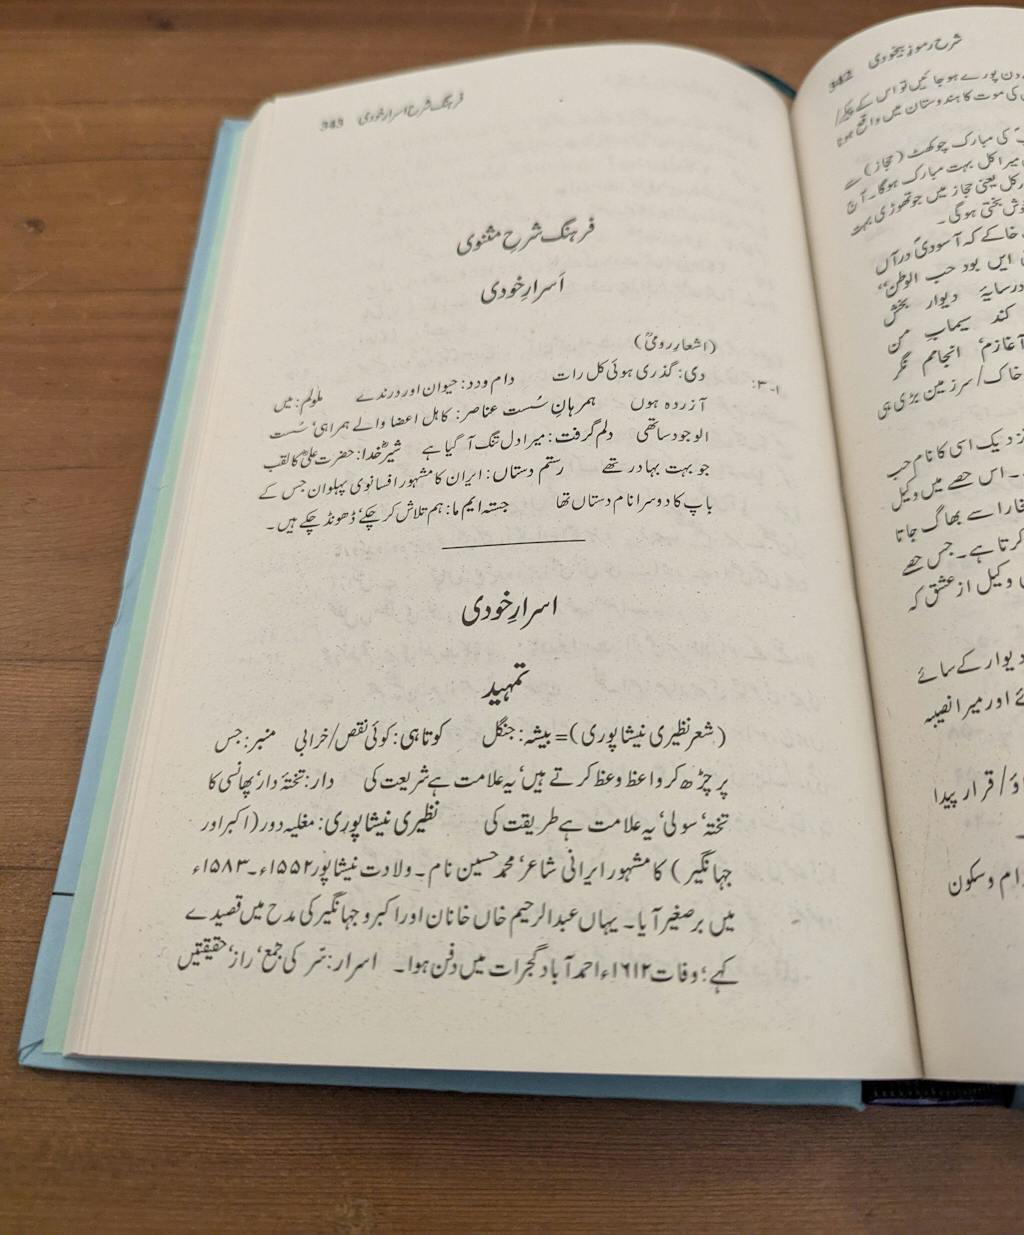 شرح رموزِ بیخودی 342
دن پورے ہو جائیں تو اس کے پیکر/
کی موت کا ہندوستان میں واقع ہونا
کی مبارک چوکھٹ (حجاز) سے
میرا کل بہت مبارک ہوگا۔ آج
کل یعنی حجاز میں جو تھوڑی بہت
خوش بختی ہوگی۔
خاکے کہ آسودیٔ درآں
ایں بود حب الوطن“
درسایۂ دیوار بخش
کند سیمابِ من
آغازم‘ انجامم نگر
خاک/ سرزمین بڑی ہی
نزدیک اسی کا نام حب
۔ اس حصے میں وکیل
بخارا سے بھاگ جاتا
کرتا ہے۔ جس حصے
وکیل از عشق کہ
دیوار کے سائے
اور میرا نصیبہ
/ قرار پیدا
۔
آرام و سکون
فرہنگ شرح اسرارِ خودی 343
فرہنگ شرحِ مثنوی
اَسرارِ خودی
(اشعارِ رومیؒ)
۱-۳: دی: گذری ہوئی کل رات دام ودد: حیوان اور درندے ملولم: میں
آزردہ ہوں ہمرہانِ سُست عناصر: کاہل اعضا والے ہمراہی‘ سُست
الوجود ساتھی دلم گرفت: میرا دل تنگ آ گیا ہے شیرِ خدا: حضرت علیؓ کا لقب
جو بہت بہادر تھے رستم دستاں: ایران کا مشہور افسانوی پہلوان جس کے
باپ کا دوسرا نام دستاں تھا جستہ ایم ما: ہم تلاش کر چکے‘ ڈھونڈ چکے ہیں۔
اسرارِ خودی
تمہید
(شعر نظیری نیشاپوری)= بیشہ: جنگل کوتاہی: کوئی نقص/خرابی منبر: جس
پر چڑھ کر واعظ وعظ کرتے ہیں‘ یہ علامت ہے شریعت کی دار: تختۂ دار‘ پھانسی کا
تختہ‘ سولی‘ یہ علامت ہے طریقت کی نظیری نیشاپوری: مغلیہ دور (اکبر اور
جہانگیر) کا مشہور ایرانی شاعر‘ محمد حسین نام۔ ولادت نیشاپور ۱۵۵۲ء۔ ۱۵۸۳ء
میں برصغیر آیا۔ یہاں عبدالرحیم خاں خاناں اور اکبر و جہانگیر کی مدح میں قصیدے
کہے؛ وفات ۱۶۱۲ء احمد آباد گجرات میں دفن ہوا۔ اسرار: سّر کی جمع‘ راز‘ حقیقتیں